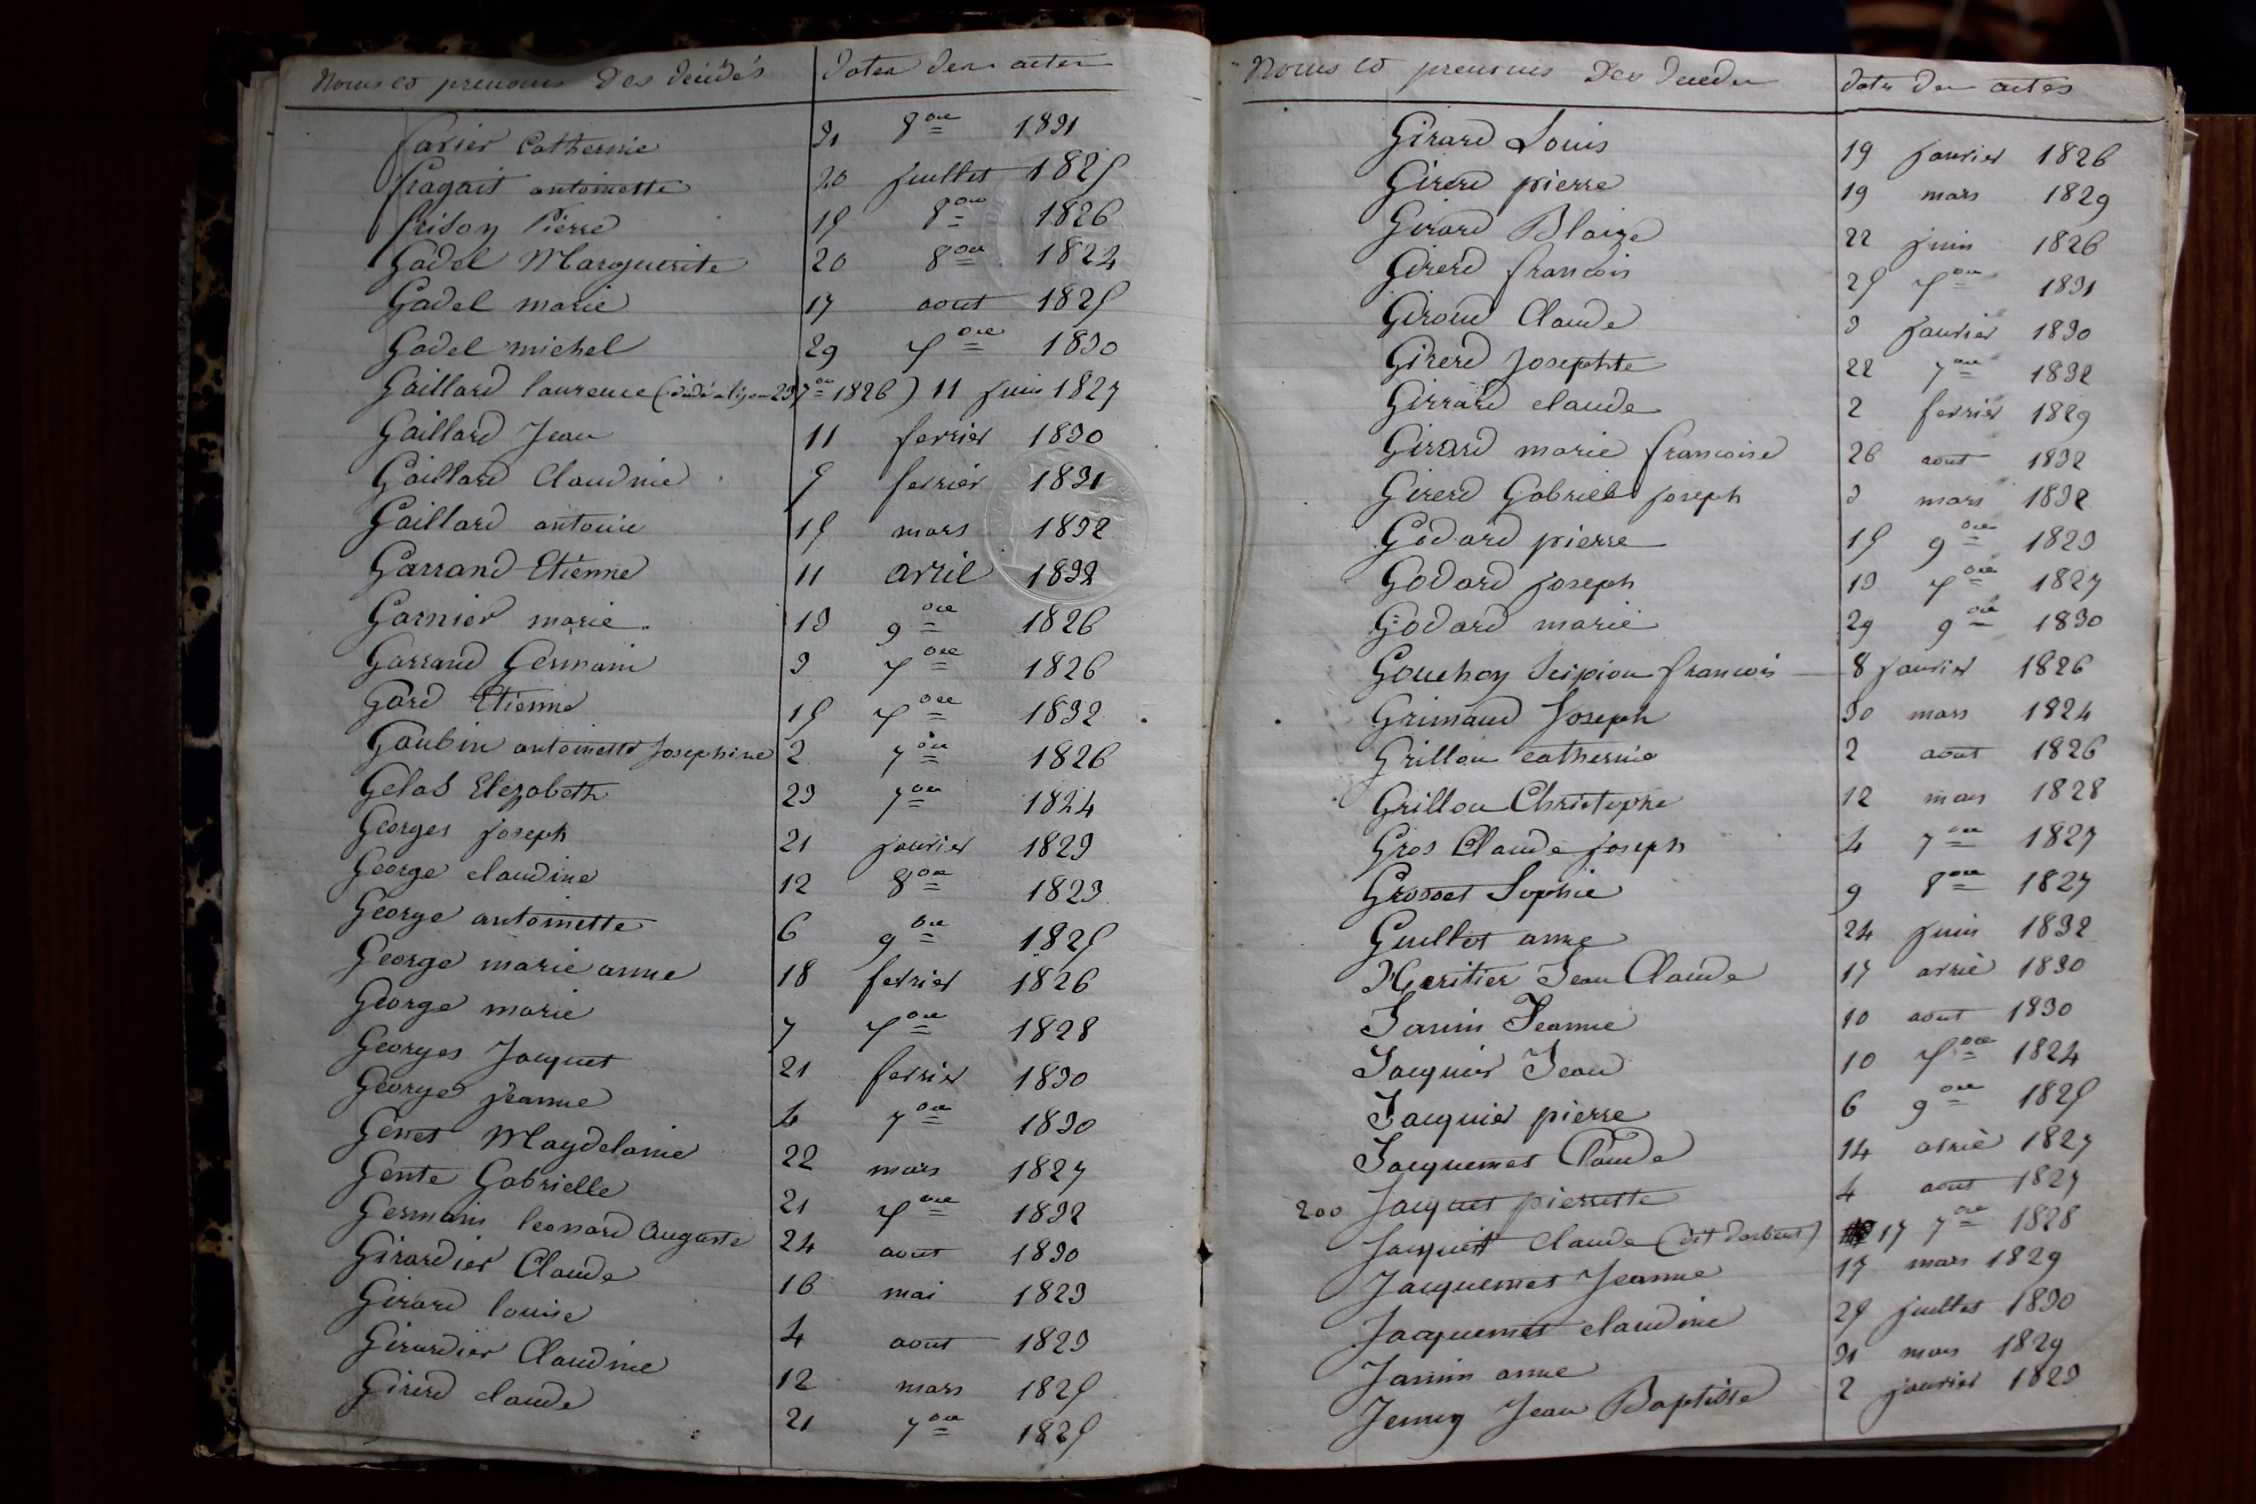 Noms et prenoms des décédés dates des actes
farier Catherine 31 8bre 1831
fragait antoinette 20 juillet 1825
frison Pierre 15 8bre 1826
Gadel Marguerite 20 8bre 1824
Gadel marie 17 aout 1825
Gadel michel 29 Xbre 1830
Gaillard laurence (décédé a lyon 23 7bre 1826) 11 juin 1827
Gaillard Jean 11 fevrier 1830
Gaillard Claudine 5 fevrier 1831
Gaillard antoine 15 mars 1832
Garrand Etienne 11 avril 1832
Garnier marie 13 9bre 1826
Garrand Germain 3 Xbre 1826
Gard Etienne 15 Xbre 1832
Gaubin antoinette Josephine 2 7bre 1826
Gelas Elezabeth 23 7bre 1824
Georges joseph 21 janvier 1823
George claudine 12 8bre 1823
George antoinette 6 9bre 1825
George marie anne 18 fevrier 1826
George marie 7 Xbre 1828
Georges Jacques 21 fevrier 1830
George jeanne 4 7bre 1830
Genet Magdelaine 22 mars 1827
Gente Gabrielle 21 Xbre 1832
Germain leonard Auguste 24 aout 1830
Girardier Claude 16 mai 1823
Girard louise 4 aout 1823
Girardier Claudine 12 mars 1825
Girerd claude 21 7bre 1825
Noms et prenoms des decedes date des actes
Girard Louis 19 janvier 1826
Girerd pierre 19 mars 1829
Girard Blaize 22 juin 1826
Girerd francois 25 Xbre 1831
Giroud Claude 3 janvier 1830
Girerd Josephte 22 7bre 1832
Girrard claude 2 fevrier 1829
Girard marie francoise 26 aout 1832
Girerd Gabriel joseph 3 mars 1832
Godard pierre 15 9bre 1823
Godard joseph 13 Xbre 1827
Godard marie 29 9bre 1830
Gouchon Scipion francois 8 janvier 1826
Grimaud Joseph 30 mars 1824
Grillon catherine 2 aout 1826
Grillon Christophe 12 mars 1828
Gros Claude joseph 4 7bre 1827
Grosset Sophie 9 8bre 1827
Guillet anne 24 juin 1832
Heritier Jean Claude 17 avril 1830
Janin Jeanne 10 aout 1830
Jacquier Jean 10 Xbre 1824
Jacquier pierre 6 9bre 1825
Jacquemet Claude 14 avril 1827
200 Jacquet pierrette 4 aout 1827
Jacquet claude (dit darbeut) 17 7bre 1828
Jacquemet Jeanne 17 mars 1829
Jacquemet claudine 25 juillet 1830
Janin anne 31 mars 1829
Jenny Jean Baptiste 2 janvier 1823